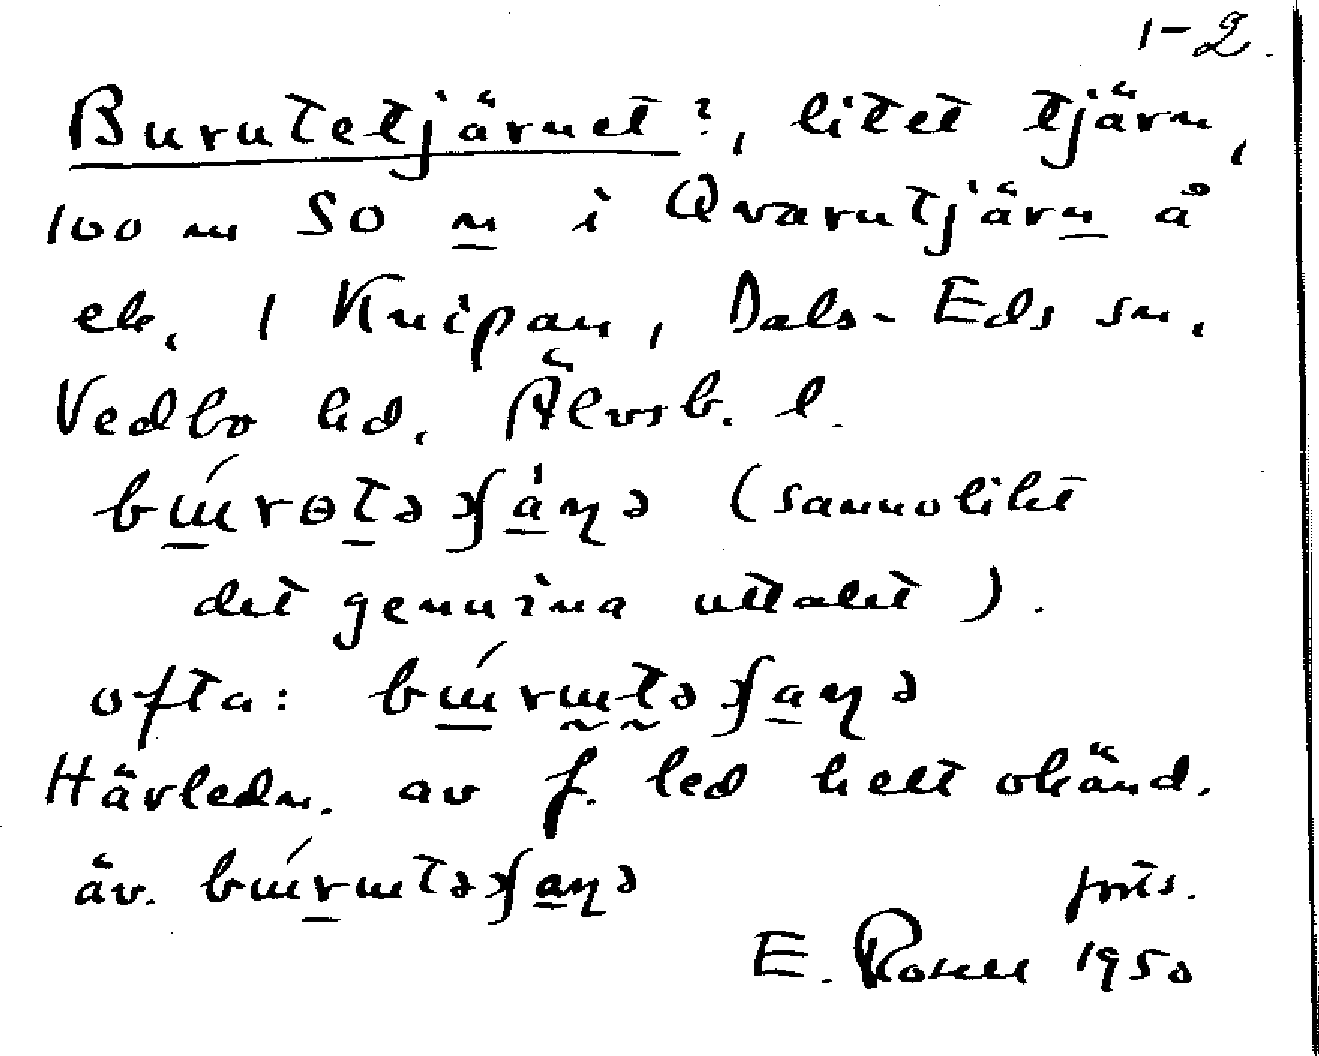 1-2.
Burutetjärnet?, litet tjärn,
100 m SO n i Qvarntjärn å
ek. 1 Knipan, Dals-Eds sn,
Vedbo hd, Älvsb. l.
(sannolikt
det genuina uttalet).
ofta:
Härledn. av f. led helt okänd.
äv. forts.
E. Rosell 1950